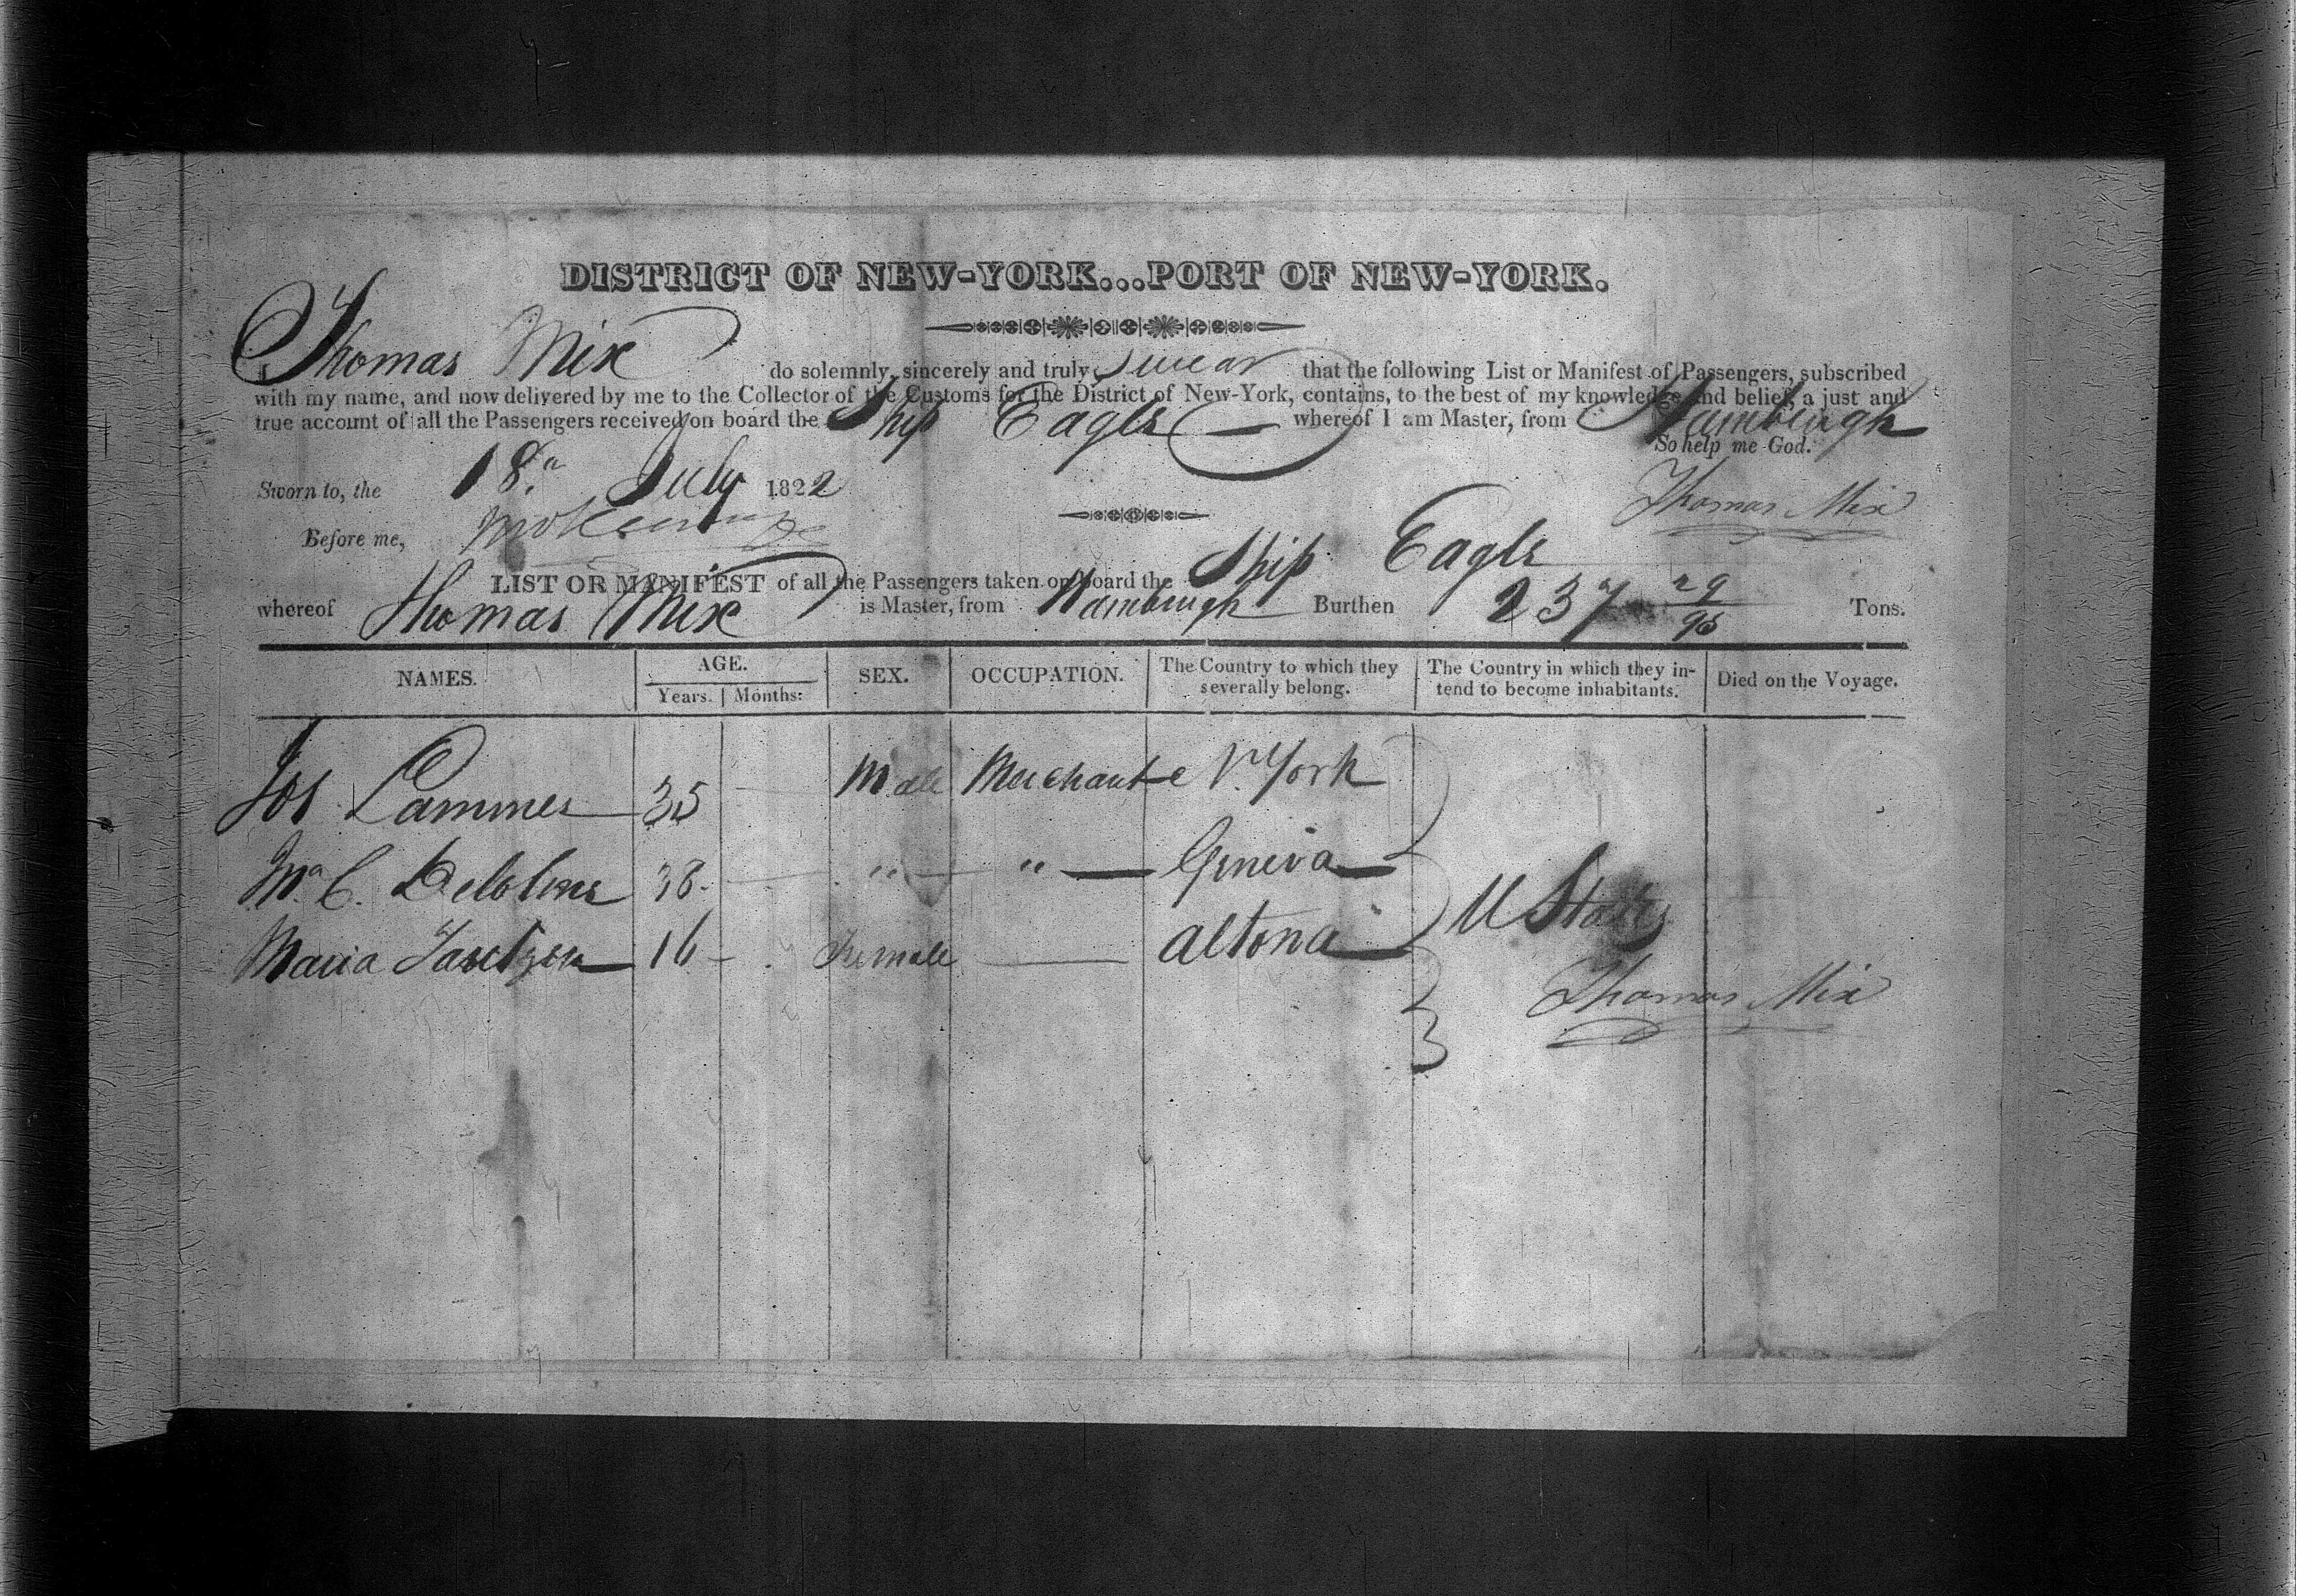 DISTRICT OF NEW-YORK...PORT OF NEW-YORK.
I Thomas Mix do solemnly, sincerely and truly swear that the following List or Manifest of Passengers, subscribed
with my name, and now delivered by me to the Collector of the Customs for the District of New-York, contains, to the best of my knowledge and belief, a just and
true account of all the Passengers received on board the Ship Eagle whereof I am Master, from Hamburgh
So help me God.
Sworn to, the 18. July 1822
Thomas Mix
Before me,
LIST OR MANIFEST of all the Passengers taken on board the Ship Eagle
whereof Thomas Mix is Master, from Hamburgh Burthen 237 29/95 Tons.
NAMES. AGE. SEX. OCCUPATION. The Country to which they severally belong. The Country in which they intend to become inhabitants. Died on the Voyage.
Years. Months:
Jos Lammer 35 Male Merchant N. York
C. 38 " " Geneva
Maria 16 Female Altona U States
Thomas Mix